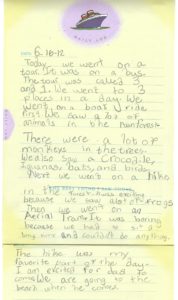 DAILY LOG
DATE 6-18-12
Today we went on a
tour. It was on a bus.
The tour was called 3
and 1. We went to 3
places in a day. We
went on a boat ride
first. We saw a lot of
animals in the rainforest.
There were a lot of
monkeys in the trees.
We also saw a Crocodile,
Iguanas, bats, and birds.
Next we went on a hike
in the
was exciting
because we saw a lot of frogs
Then we went on an
Aerial Tram. It was boring
because we had to sit a
long time and couldn't do anything.
The hike was my
favorite part of the day.
I am excited for dad to
come. We are going to the
beach when he comes.